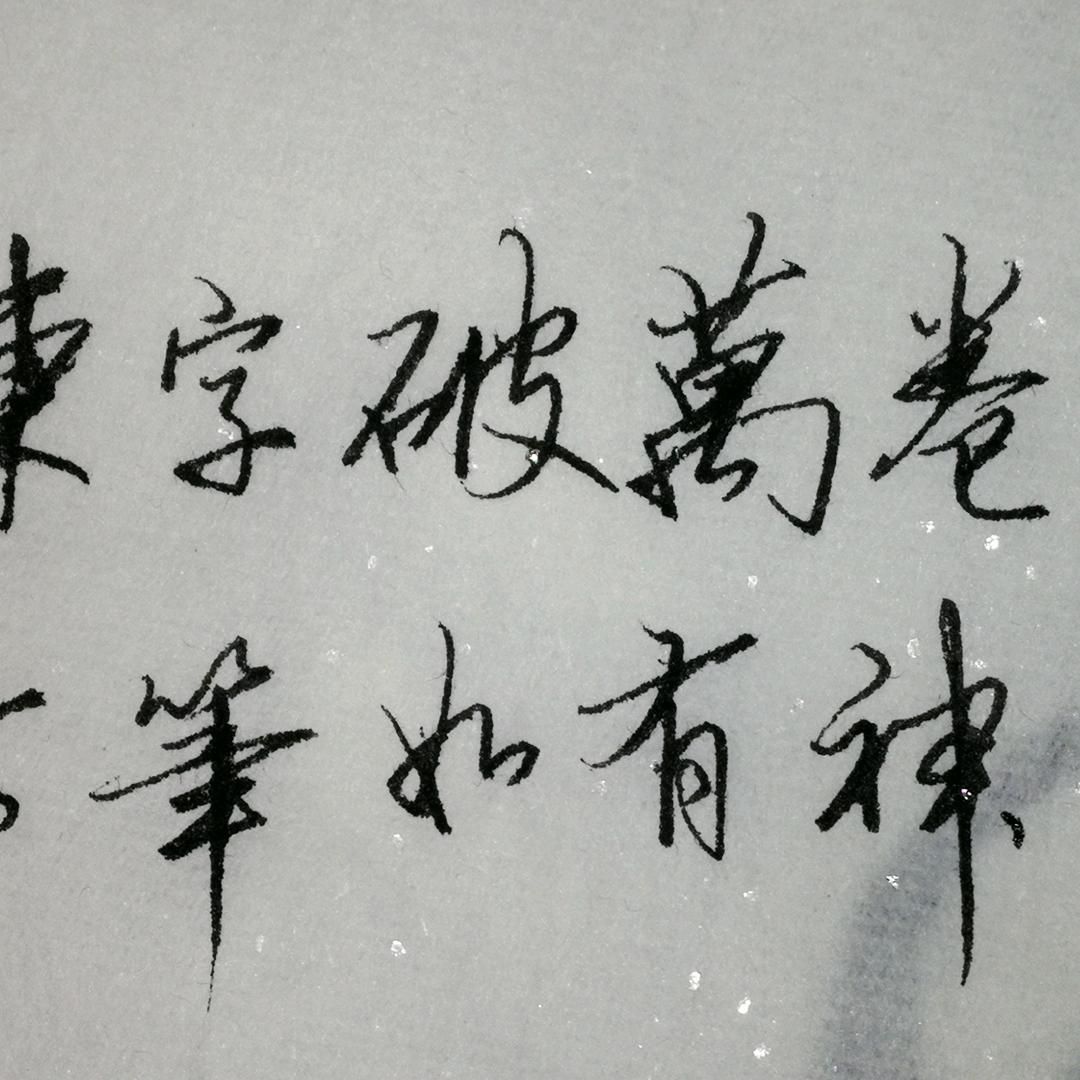 字破萬卷
筆如有神